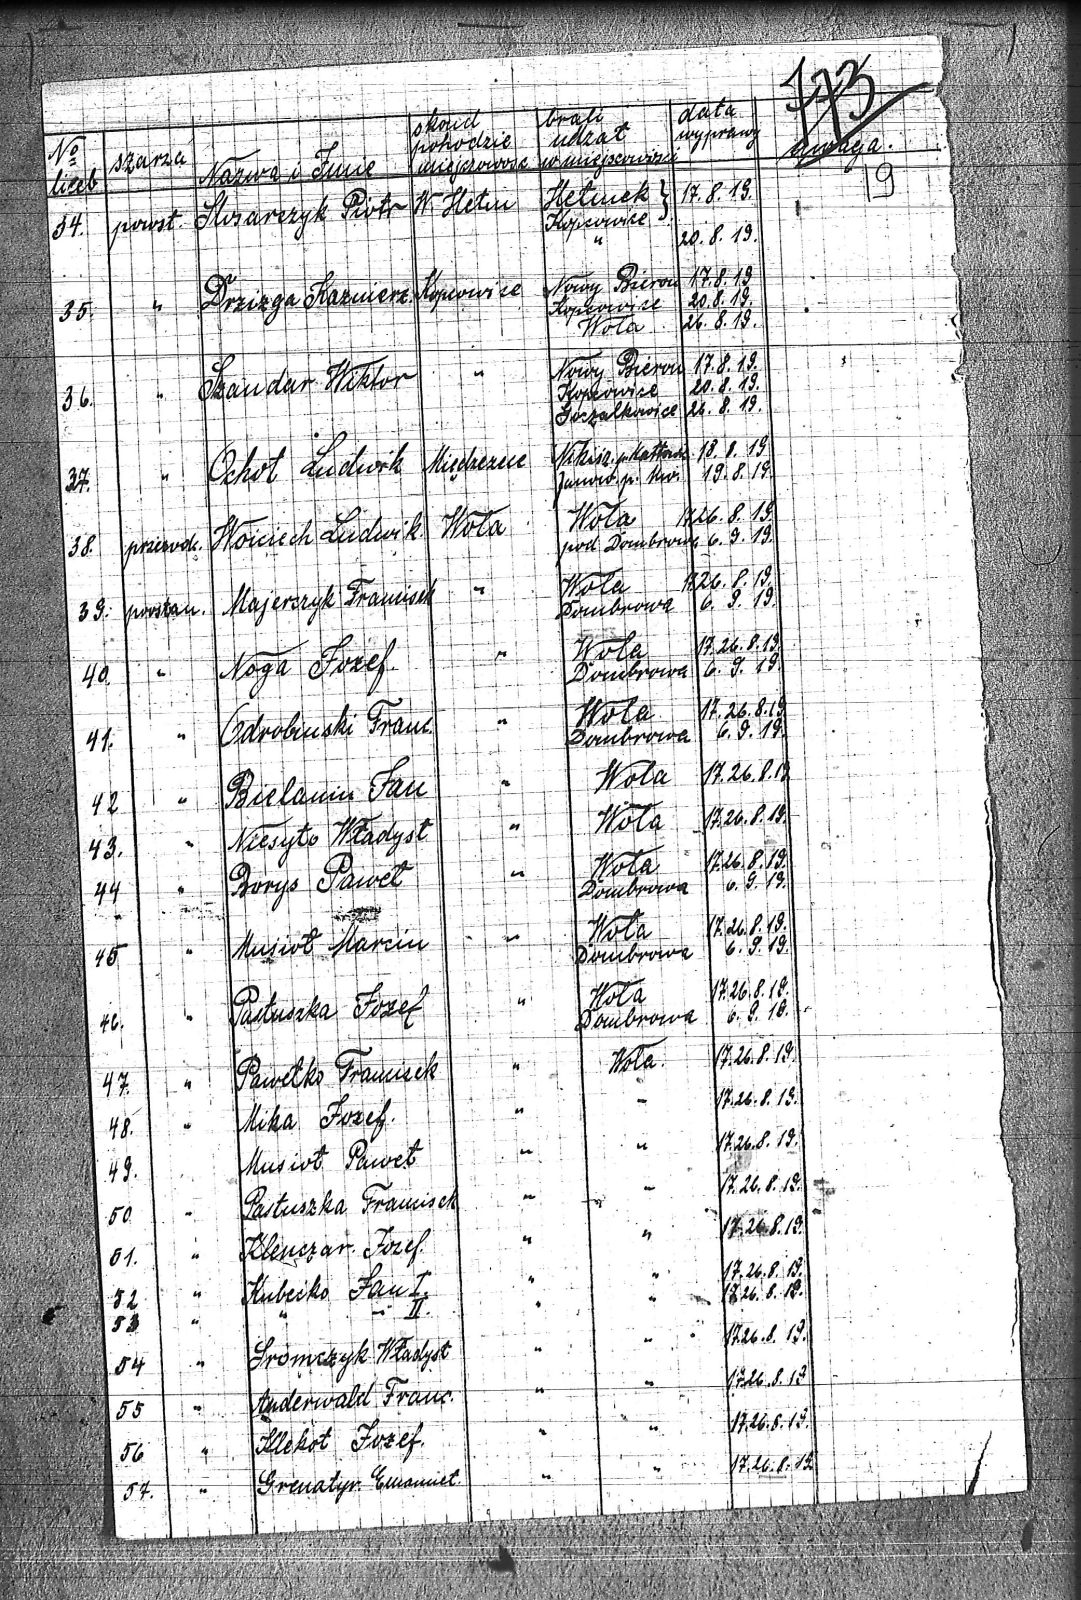 173
19
No liczb szarza Nazwa i Imie skoud pohodzie miejscowosc brali udzat w miejscowosci data wyprawy uwaga.
34. powst. Slosarczyk Piotr W Helm Helmek } 17.8.19.
Kopcowice
" 20.8.19.
35. " Drzizga Kazmierz Kopcowice Nowy Bierou 17.8.19
Kopcowice 20.8.19.
Wola 26.8.19.
36. " Szandar Wiktor " Nowy Bierou 17.8.19.
Kopcowice 20.8.19.
Goczalkowice 26.8.19.
37. " Ochot Ludwik Miedzezeic Nikisz. p. Kattowic 18.8.19
Janow. p. 19.8.19.
38. przewok. Woiciech Ludwik. Wola Wola 17.26.8.19.
pod Dombrowa 6.9.19.
39. powstan. Majerczyk Francisek " Wola 17.26.8.19.
Dombrowa 6.9.19.
40. " Noga Jozef. " Wola 17.26.8.19.
Dombrowa 6.9.19.
41. " Odrobinski Franc. " Wola 17.26.8.19
Dombrowa 6.9.19.
42 " Bielanin Jan " Wola 17.26.8.19
43. " Niesyto Władyst " Wola 17.26.8.19.
44 " Borys Paweł " Wola 17.26.8.19.
Dombrowa 6.9.19.
45 " Musioł Marcin " Wola 17.26.8.19.
Dombrowa 6.9.19.
46. " Pastuszka Jozef " Wola 17.26.8.19.
Dombrowa 6.9.19.
47. " Pawełko Francisek " Wola. 17.26.8.19.
48. " Mika Jozef. " " 17.26.8.19.
49. Musioł Paweł " " 17.26.8.19.
50 " Pastuszka Francisek " " 17.26.8.19.
51. " Klenczar. Jozef. " " 17.26.8.19.
52 " Kubeiko Jan I. " " 17.26.8.19.
53 " " " II. " " 17.26.8.19.
54 " Sromczyk Władyst " " 17.26.8.19.
55 " Anderwald Franc. " " 17.26.8.19
56 " Klekot Jozef. " " 17.26.8.19.
57. " Grenatyr. Emanuel. " " 17.26.8.19.